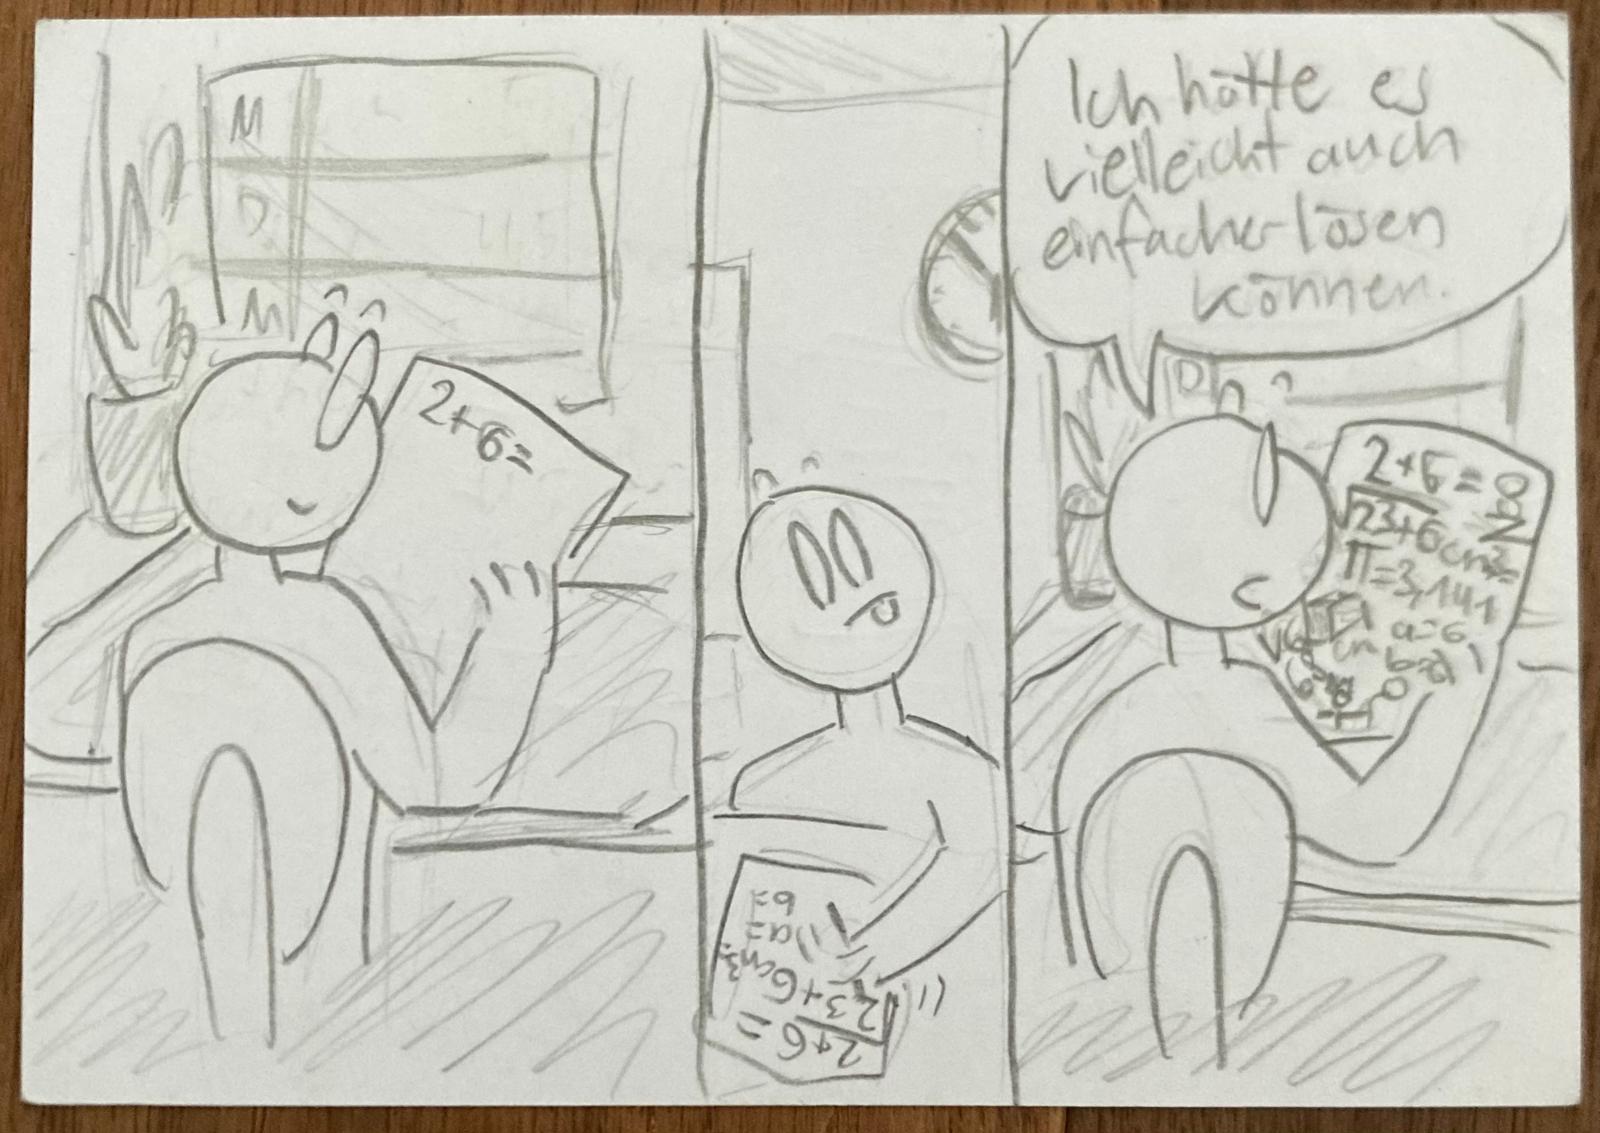 M
D
M
2+6=
2+6=
23+6cm³=
a=
b=
Ich hätte es
vielleicht auch
einfacher lösen
können.
D
2+6=
√23+6cm³=
π=3,141
a=6
cm b=